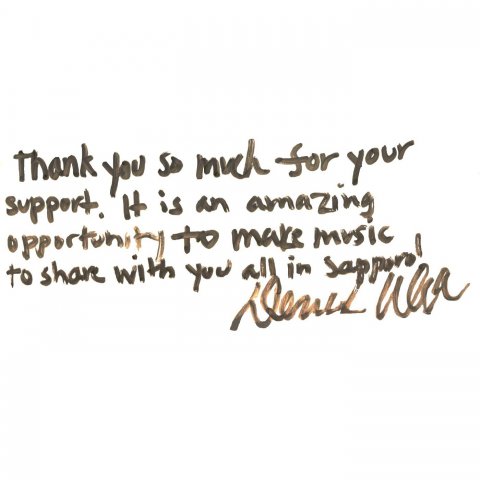 Thank you so much for your
support. It is an amazing
opportunity to make music
to share with you all in Sapporo!